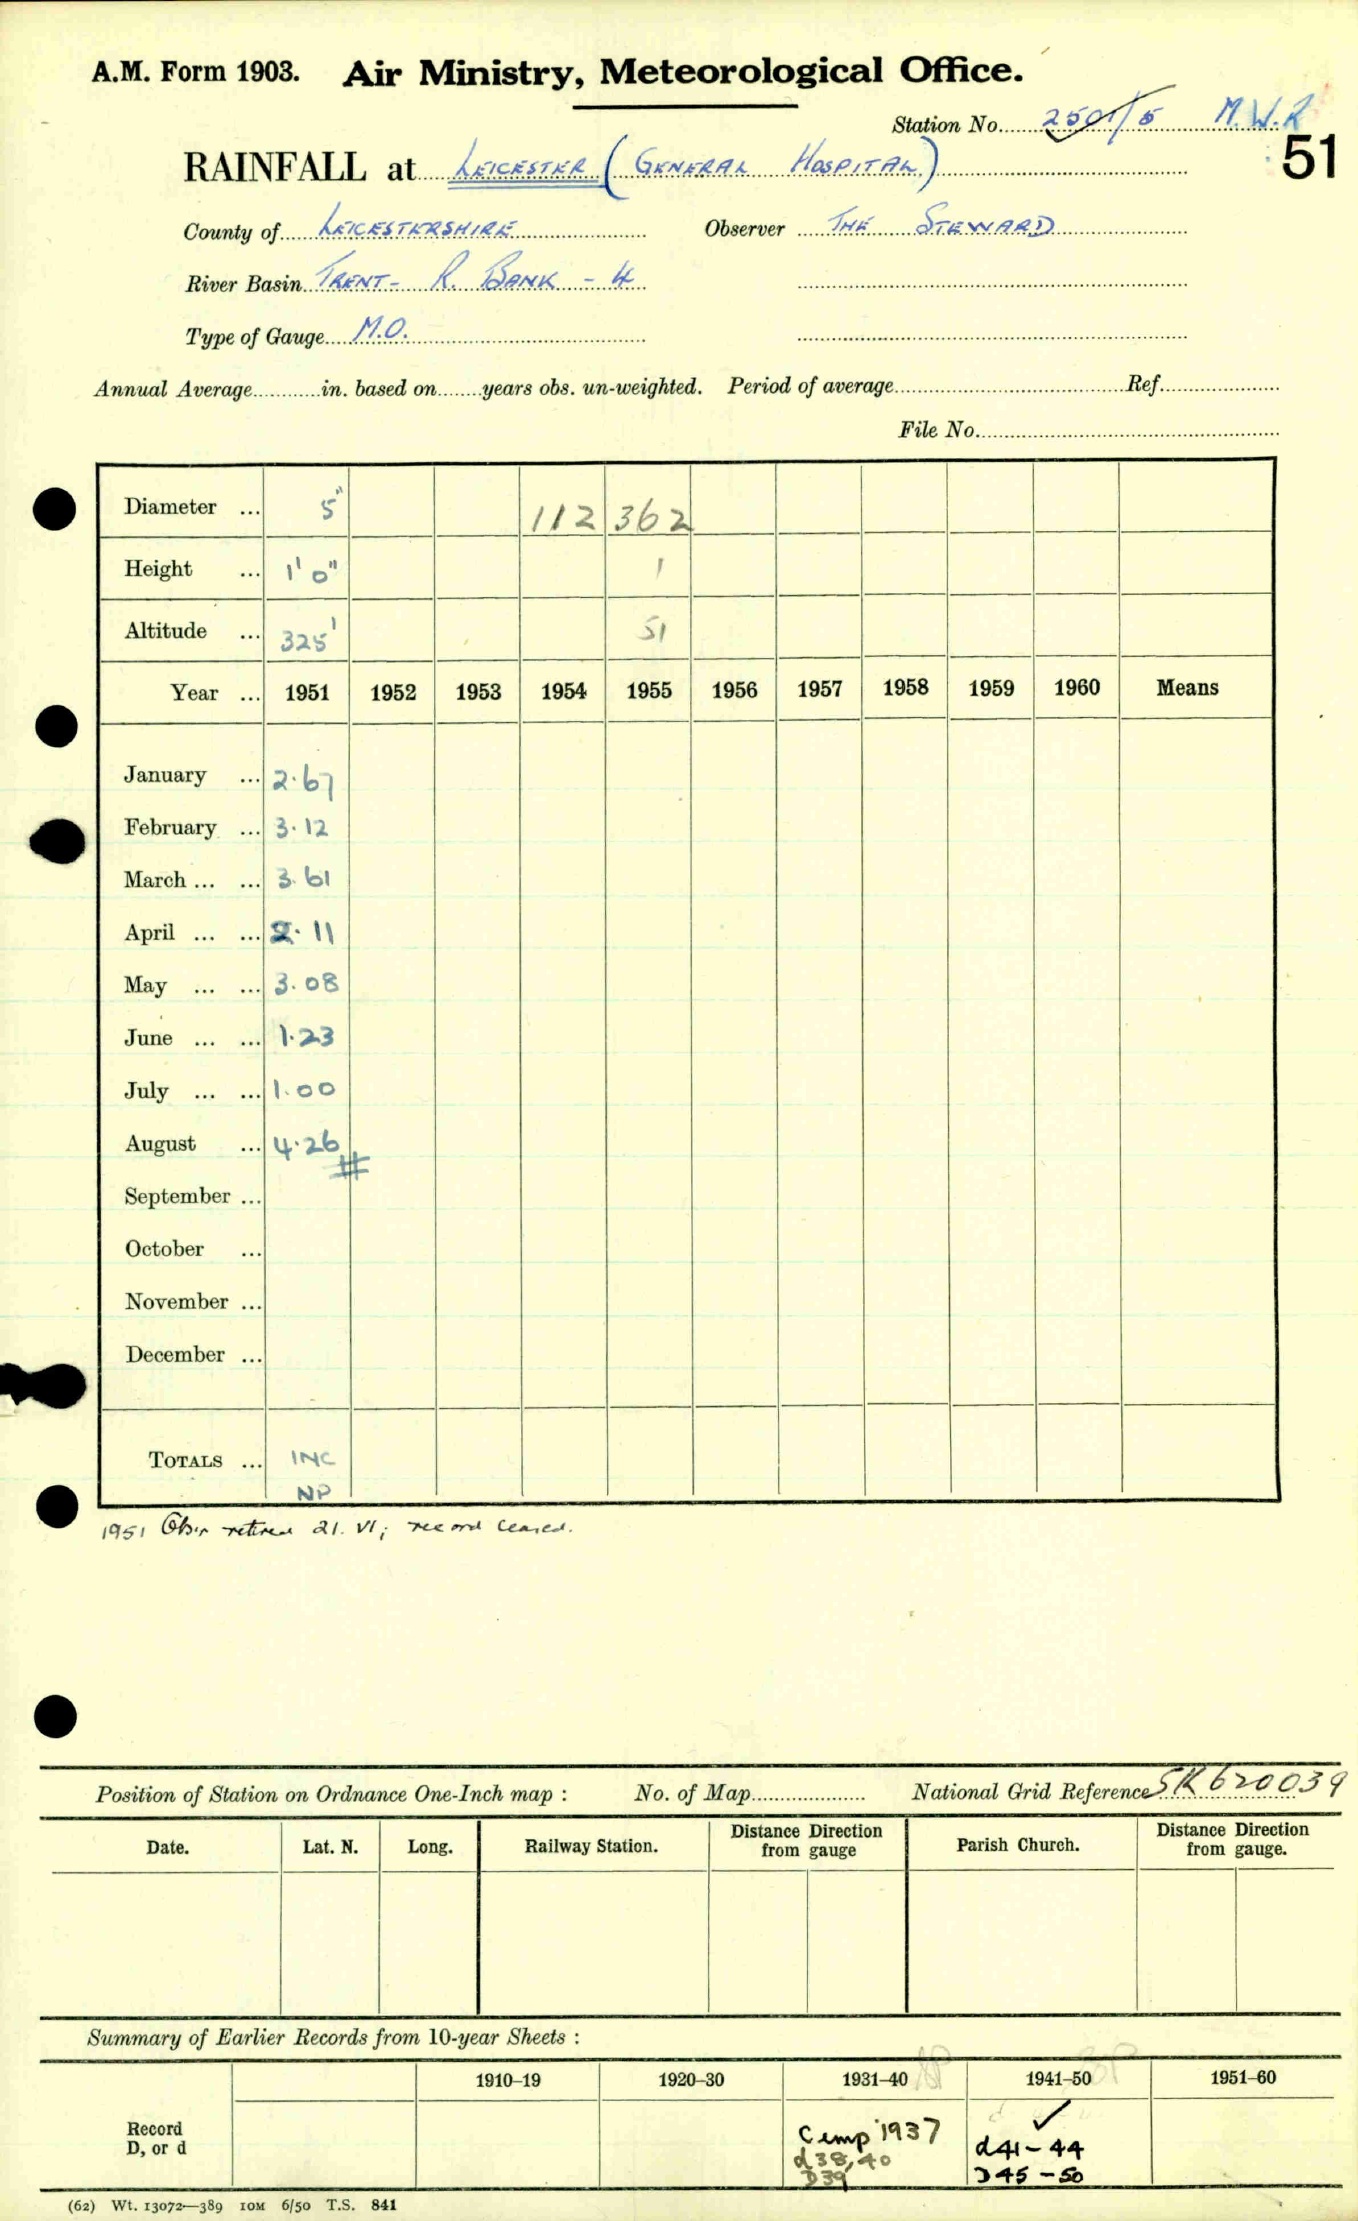 A.M. Form 1903. Air Ministry, Meteorological Office.
Station No. 2501/5 M.W.R
51
RAINFALL at LEICESTER (GENERAL HOSPITAL)
County of LEICESTERSHIRE Observer THE STEWARD
River Basin TRENT- R. BANK - 4
Type of Gauge M.O.
Annual Average............in. based on........years obs. un-weighted. Period of average............Ref............
File No............
Diameter ... 5" 112 362
Height ... 1' 0" 1
Altitude ... 325' 51
Year ... 1951 1952 1953 1954 1955 1956 1957 1958 1959 1960 Means
January ... 2.67
February ... 3.12
March ... ... 3.61
April ... ... 2.11
May ... ... 3.08
June ... ... 1.23
July ... ... 1.00
August ... 4.26 #
September ...
October ...
November ...
December ...
TOTALS ... INC
NP
1951 Obsr retired 21. VI; record ceased.
Position of Station on Ordnance One-Inch map : No. of Map............ National Grid Reference SK620039
Date. Lat. N. Long. Railway Station. Distance Direction from gauge Parish Church. Distance Direction from gauge.
Summary of Earlier Records from 10-year Sheets :
1910–19 1920–30 1931–40 1941–50 1951–60
Record D, or d
Comp 1937
d38,40
D39
✓
d41-44
D45-50
(62) Wt. 13072—389 10M 6/50 T.S. 841